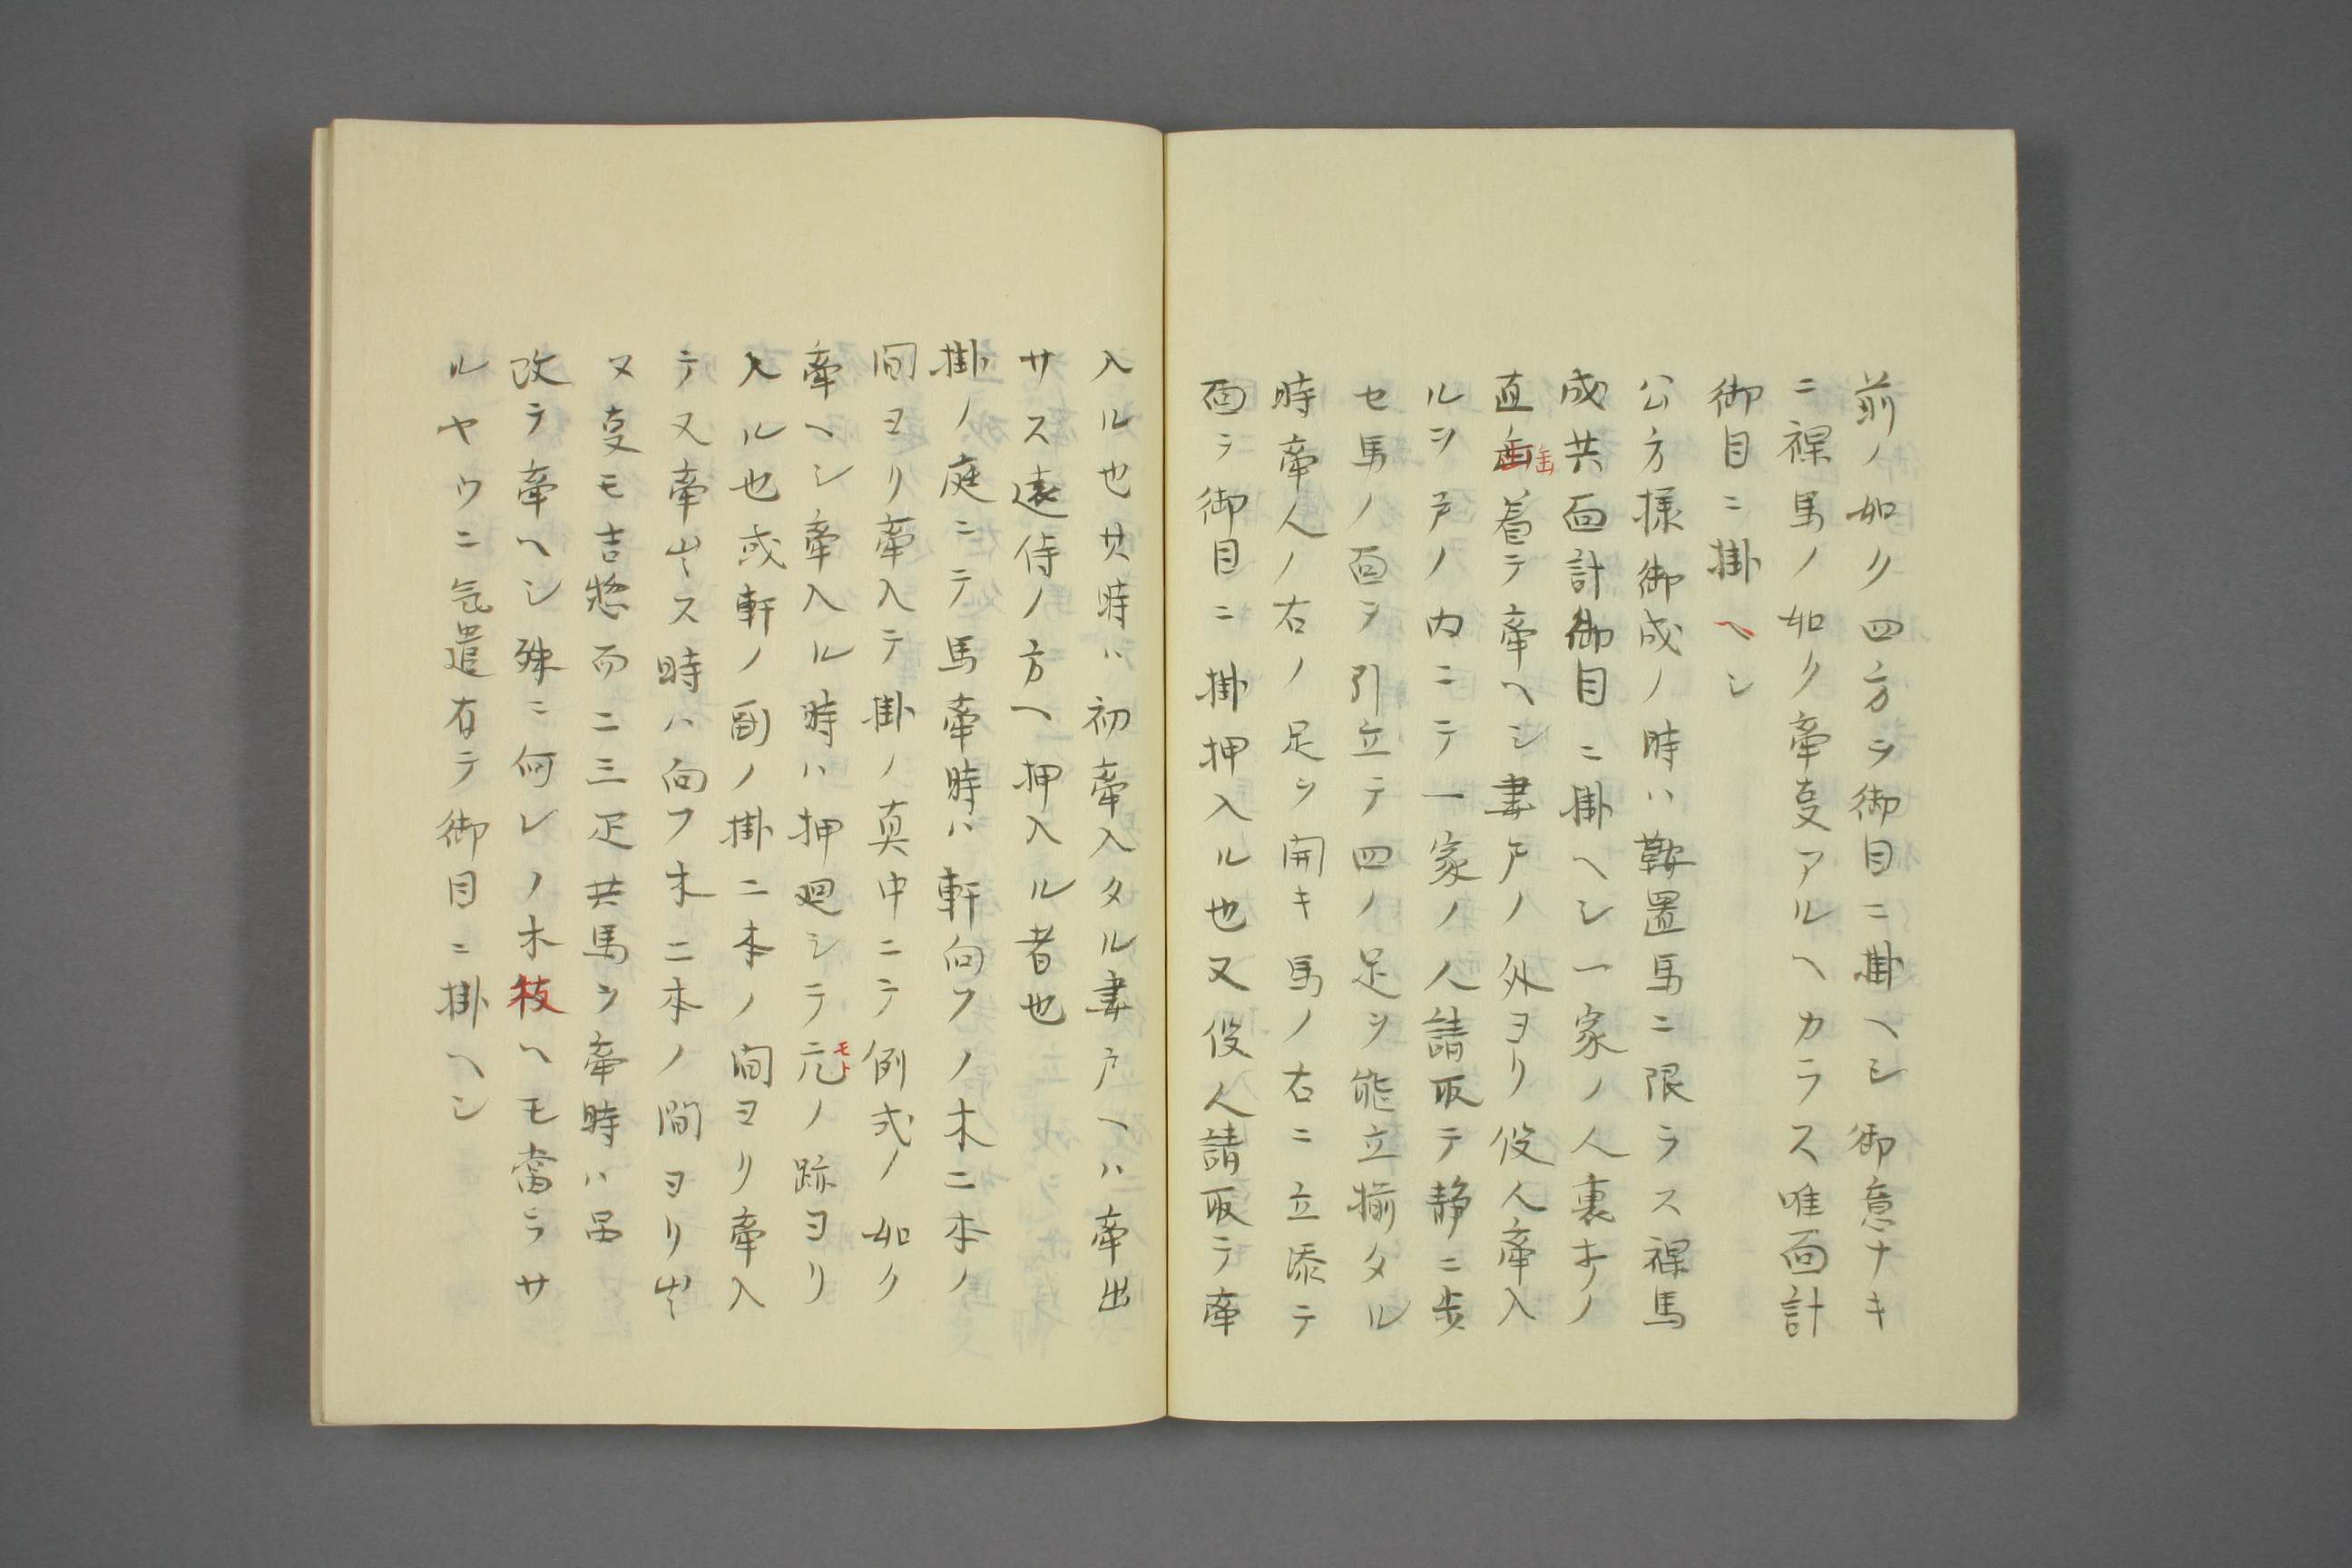 前ノ如ク四方ヲ御目ニ掛ヘシ御意ナキ
ニ裸馬ノ如ク牽叓アルヘカラス唯面計
御目ニ掛ヘシ
公方様御成ノ時ハ鞍置馬ニ限ラス裸馬
成共面計御目ニ掛ヘシ一家ノ人裏打ノ
直垂着テ牽ヘシ妻戸ノ外ヨリ役人牽入
ルヲ戸ノ内ニテ一家ノ人請取テ静ニ歩
セ馬ノ面ヲ引立テ四ノ足ヲ能立揃タル
時牽人ノ右ノ足ヲ開キ馬ノ右ニ立添テ
面ヲ御目ニ掛押入ル也又役人請取テ牽
入ル也其時ハ初牽入タル妻戸ヘハ牽出
サス遠侍ノ方ヘ押入ル者也
掛ノ庭ニテ馬牽時ハ軒向フノ木二本ノ
間ヨリ牽入テ掛ノ真中ニテ例式ノ如ク
牽ヘシ牽入ル時ハ押廻シテ元モトノ跡ヨリ
入ル也或軒ノ面ノ掛二本ノ間ヨリ牽入
テ又牽出ス時ハ向フ木二本ノ間ヨリ出
ス叓モ吉惣而二三疋共馬ヲ牽時ハ
改テ牽ヘシ殊ニ何レノ木枝ヘモ當ラサ
ルヤウニ気遣有テ御目ニ掛ヘシ